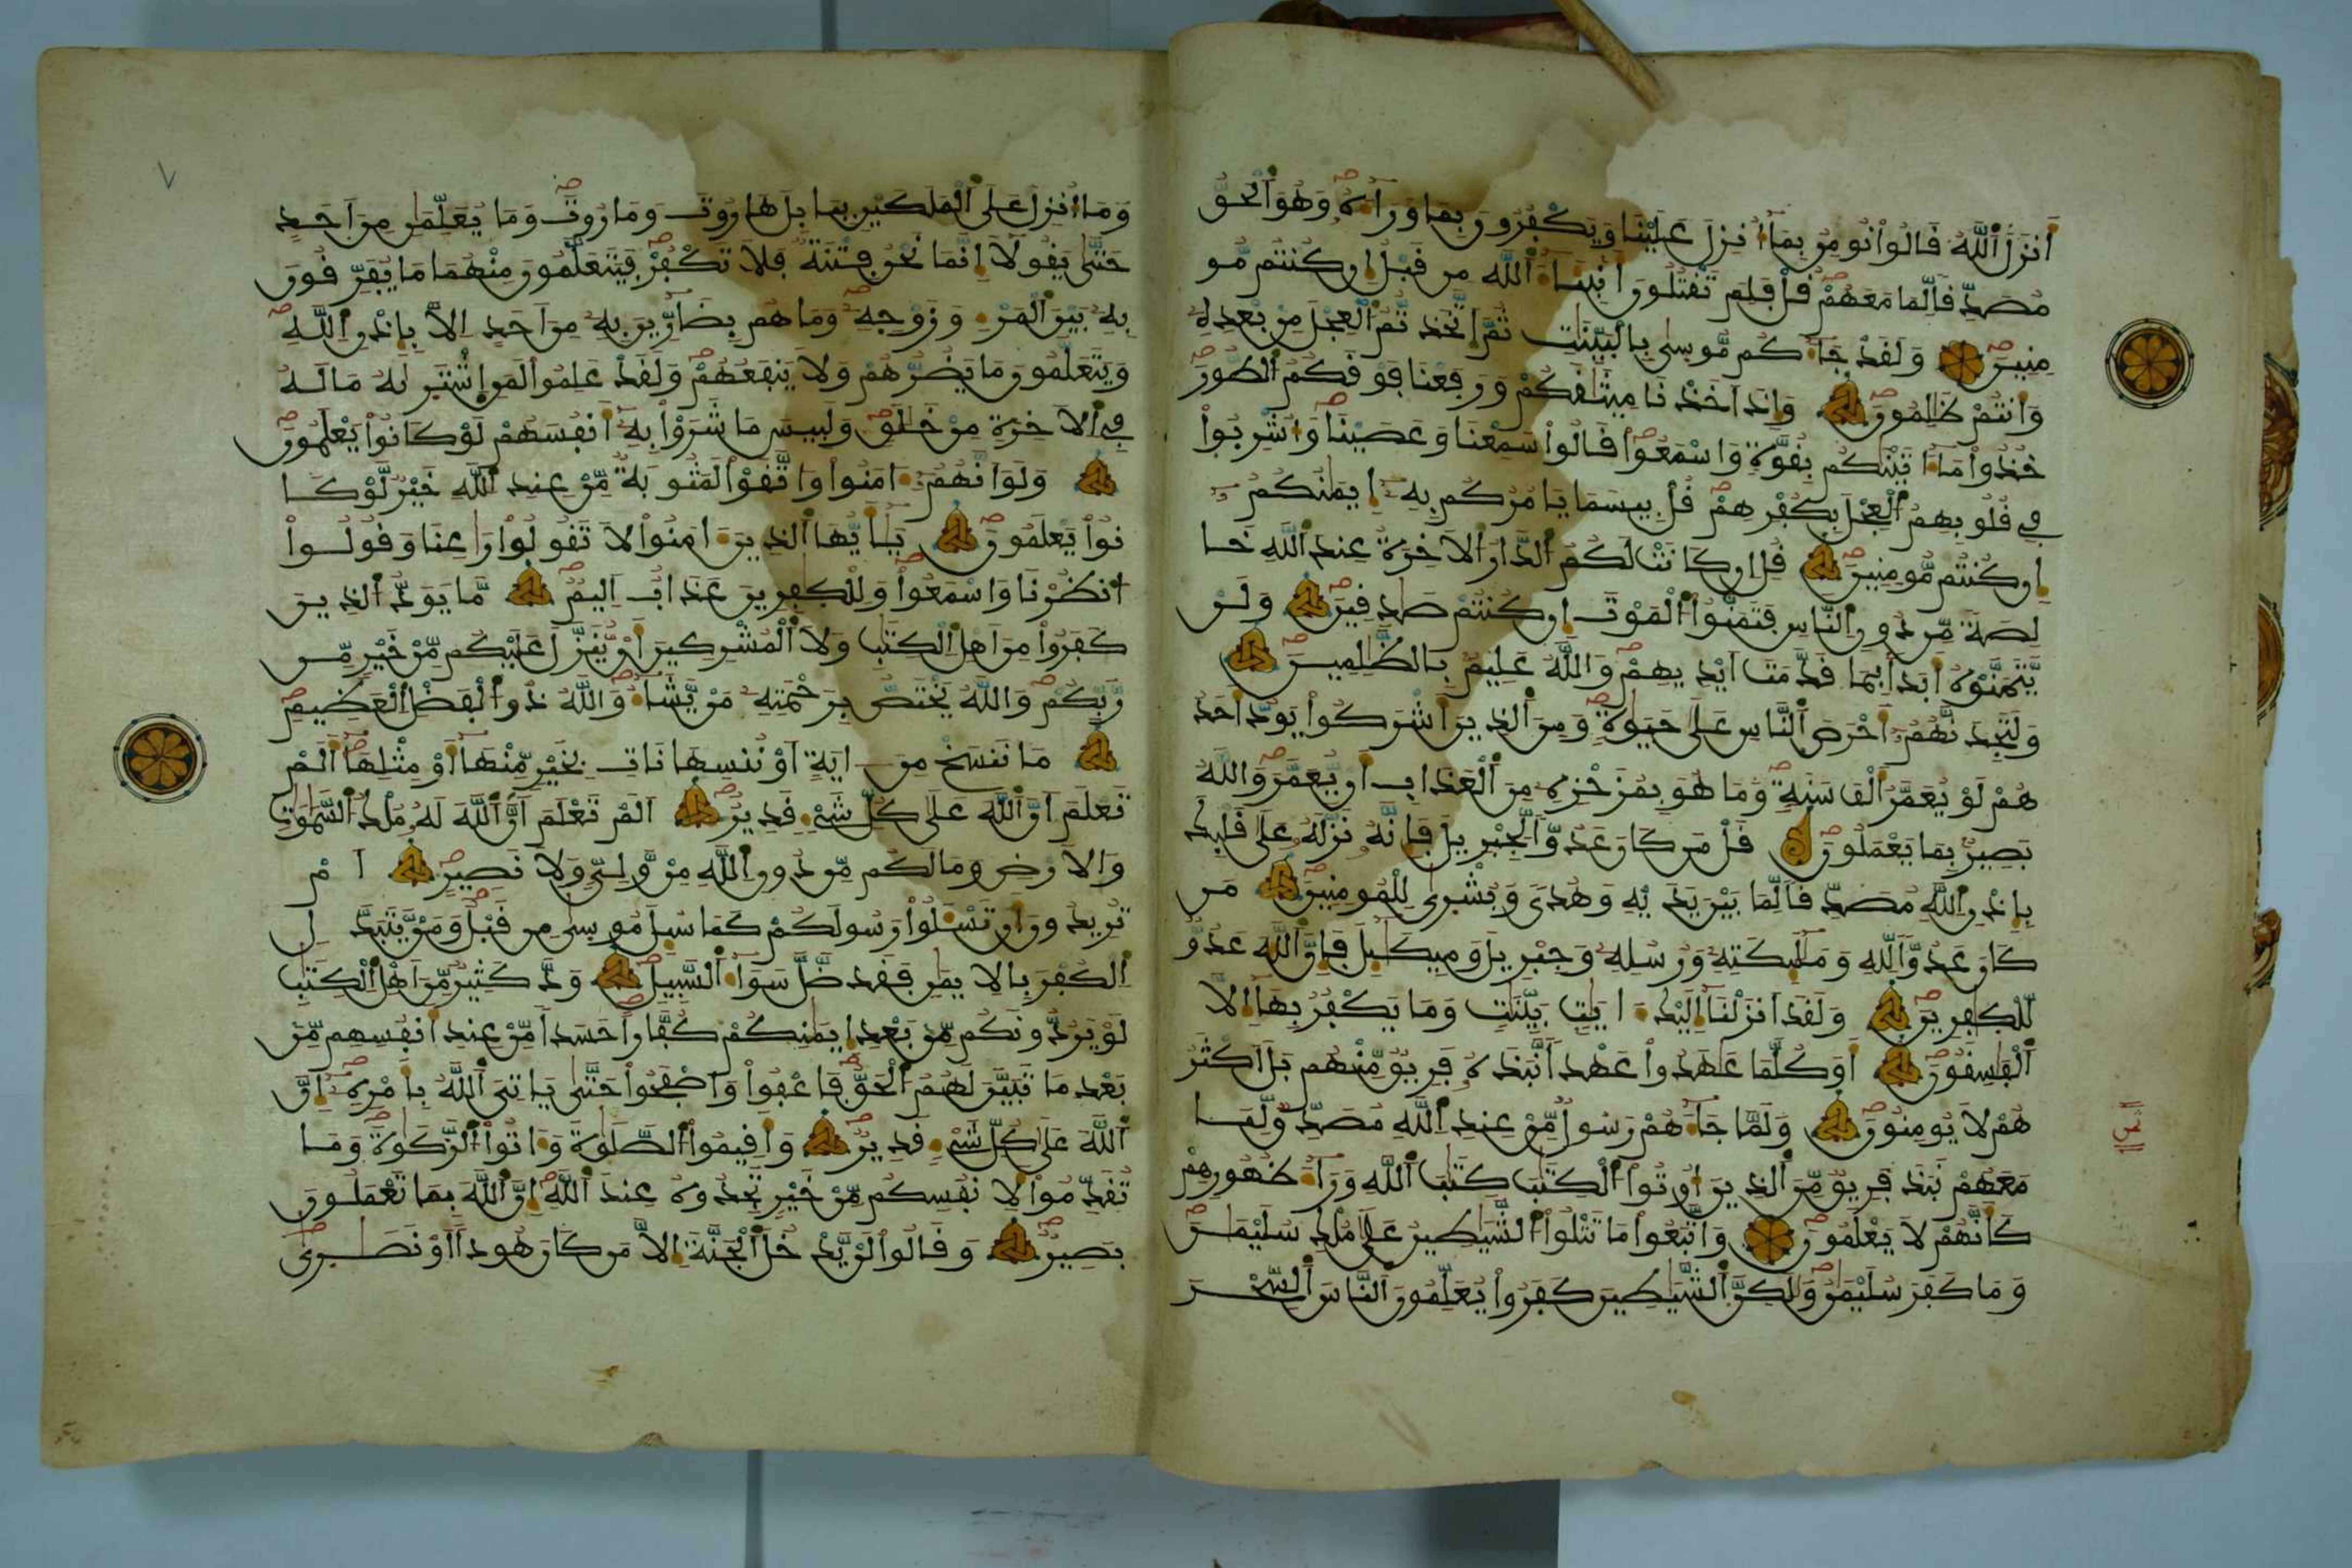 أَنزَلَ ٱللَّهُ قَالُواْ نُومِنُ بِمَا أُنزِلَ عَلَيْنَا وَيَكْفُرُونَ بِمَا وَرَآءَهُۥ وَهُوَ ٱلْحَقُّ
مُصَدِّقاً لِّمَا مَعَهُمْ قُلْ فَلِمَ تَقْتُلُونَ أَنۢبِئَآءَ ٱللَّهِ مِن قَبْلُ إِن كُنتُم مُّو
مِنِينَ وَلَقَدْ جَآءَكُم مُّوسِىٰ بِالْبَيِّنَٰتِ ثُمَّ ٱتَّخَذتُّمُ ٱلْعِجْلَ مِنۢ بَعْدِهِۦ
وَأَنتُمْ ظَٰلِمُونَ وَإِذَ اَخَذْنَا مِيثَٰقَكُمْ وَرَفَعْنَا فَوْقَكُمُ ٱلطُّورَ
خُذُواْ مَا ءَاتَيْنَٰكُم بِقُوَّةٍ وَٱسْمَعُواْ قَالُواْ سَمِعْنَا وَعَصَيْنَا وَأُشْرِبُواْ
فِى قُلُوبِهِمُ ٱلْعِجْلَ بِكُفْرِهِمْ قُلْ بِيسَمَا يَامُرُكُم بِهِۦٓ إِيمَٰنُكُمُۥٓ
إِن كُنتُم مُّومِنِينَ قُلِ اِن كَانَتْ لَكُمُ ٱلدَّارُ ٱلَاخِرَةُ عِندَ ٱللَّهِ خَا
لِصَةً مِّن دُونِ ٱلنَّاسِ فَتَمَنَّوُاْ ٱلْمَوْتَ إِن كُنتُمْ صَٰدِقِينَ وَلَنْ
يَّتَمَنَّوْهُ أَبَداً بِمَا قَدَّمَتَ اَيْدِيهِمْ وَٱللَّهُ عَلِيمٌ بِالظَّٰلِمِينَ
وَلَتَجِدَنَّهُمُۥٓ أَحْرَصَ ٱلنَّاسِ عَلَىٰ حَيَوٰةٍ وَمِنَ ٱلذِينَ أَشْرَكُواْ يَوَدُّ أَحَدُ
هُمْ لَوْ يُعَمَّرُ أَلْفَ سَنَةٍ وَمَا هُوَ بِمُزَحْزِحِهِۦ مِنَ ٱلْعَذَابِ أَنْ يُّعَمَّرَ وَٱللَّهُ
بَصِيرٌ بِمَا يَعْمَلُونَ قُلْ مَن كَانَ عَدُوّاً لِّجِبْرِيلَ فَإِنَّهُۥ نَزَّلَهُۥ عَلَىٰ قَلْبِكَ
بِإِذْنِ ٱللَّهِ مُصَدِّقاً لِّمَا بَيْنَ يَدَيْهِ وَهُدىً وَبُشْرِىٰ لِلْمُومِنِينَ مَن
كَانَ عَدُوّاً لِّلَّهِ وَمَلَٰٓئِكَتِهِۦ وَرُسُلِهِۦ وَجِبْرِيلَ وَمِيكَٰٓئِلَ فَإِنَّ ٱللَّهَ عَدُوٌّ
لِّلْكَٰفِرِينَ وَلَقَدَ اَنزَلْنَآ إِلَيْكَ ءَايَٰتٍۭ بَيِّنَٰتٍ وَمَا يَكْفُرُ بِهَآ إِلَّا
ٱلْفَٰسِقُونَ أَوَكُلَّمَا عَٰهَدُواْ عَهْداً نَّبَذَهُۥ فَرِيقٌ مِّنْهُم بَلَ اَكْثَرُ
هُمْ لَا يُومِنُونَ وَلَمَّا جَآءَهُمْ رَسُولٌ مِّنْ عِندِ ٱللَّهِ مُصَدِّقٌ لِّمَا
مَعَهُمْ نَبَذَ فَرِيقٌ مِّنَ ٱلذِينَ أُوتُواْ ٱلْكِتَٰبَ كِتَٰبَ ٱللَّهِ وَرَآءَ ظُهُورِهِمْ
كَأَنَّهُمْ لَا يَعْلَمُونَ وَٱتَّبَعُواْ مَا تَتْلُواْ ٱلشَّيَٰطِينُ عَلَىٰ مُلْكِ سُلَيْمَٰنَ
وَمَا كَفَرَ سُلَيْمَٰنُ وَلَٰكِنَّ ٱلشَّيَٰطِينَ كَفَرُواْ يُعَلِّمُونَ ٱلنَّاسَ ٱلسِّحْرَ
٧
وَمَآ أُنزِلَ عَلَى ٱلْمَلَكَيْنِ بِبَابِلَ هَٰرُوتَ وَمَٰرُوتَ وَمَا يُعَلِّمَٰنِ مِنَ اَحَدٍ
حَتَّىٰ يَقُولَآ إِنَّمَا نَحْنُ فِتْنَةٌ فَلَا تَكْفُرْ فَيَتَعَلَّمُونَ مِنْهُمَا مَا يُفَرِّقُونَ
بِهِۦ بَيْنَ ٱلْمَرْءِ وَزَوْجِهِۦ وَمَا هُم بِضَآرِّينَ بِهِۦ مِنَ اَحَدٍ اِلَّا بِإِذْنِ ٱللَّهِ
وَيَتَعَلَّمُونَ مَا يَضُرُّهُمْ وَلَا يَنفَعُهُمْ وَلَقَدْ عَلِمُواْ لَمَنِ ٱشْتَرَىٰهُ مَا لَهُۥ
فِى ٱلَاخِرَةِ مِنْ خَلَٰقٍ وَلَبِيسَ مَا شَرَوْاْ بِهِۦٓ أَنفُسَهُمْ لَوْ كَانُواْ يَعْلَمُونَ
وَلَوَ اَنَّهُمُۥٓ ءَامَنُواْ وَٱتَّقَوْاْ لَمَثُوبَةٌ مِّنْ عِندِ ٱللَّهِ خَيْرٌ لَّوْ كَا
نُواْ يَعْلَمُونَ يَٰٓأَيُّهَا ٱلذِينَ ءَامَنُواْ لَا تَقُولُواْ رَٰعِنَا وَقُولُواْ
ٱنظُرْنَا وَٱسْمَعُواْ وَلِلْكَٰفِرِينَ عَذَابٌ اَلِيمٌ مَّا يَوَدُّ ٱلذِينَ
كَفَرُواْ مِنَ اَهْلِ ٱلْكِتَٰبِ وَلَا ٱلْمُشْرِكِينَ أَنْ يُّنَزَّلَ عَلَيْكُم مِّنْ خَيْرٍ مِّن
رَّبِّكُمْ وَٱللَّهُ يَخْتَصُّ بِرَحْمَتِهِۦ مَنْ يَّشَآءُ وَٱللَّهُ ذُو ٱلْفَضْلِ ٱلْعَظِيمِ
مَا نَنسَخْ مِنَ ايَةٍ اَوْ نُنسِهَا نَاتِ بِخَيْرٍ مِّنْهَآ أَوْ مِثْلِهَآ أَلَمْ
تَعْلَمَ اَنَّ ٱللَّهَ عَلَىٰ كُلِّ شَىْءٍ قَدِيرٌ اَلَمْ تَعْلَمَ اَنَّ ٱللَّهَ لَهُۥ مُلْكُ ٱلسَّمَٰوَٰتِ
وَٱلَارْضِ وَمَا لَكُم مِّن دُونِ ٱللَّهِ مِنْ وَّلِىٍّ وَلَا نَصِيرٍ اَمْ
تُرِيدُونَ أَن تَسْـَٔلُواْ رَسُولَكُمْ كَمَا سُئِلَ مُوسِىٰ مِن قَبْلُ وَمَنْ يَّتَبَدَّلِ
ٱلْكُفْرَ بِالِايمَٰنِ فَقَد ضَّلَّ سَوَآءَ ٱلسَّبِيلِ وَدَّ كَثِيرٌ مِّنَ اَهْلِ ٱلْكِتَٰبِ
لَوْ يَرُدُّونَكُم مِّنۢ بَعْدِ إِيمَٰنِكُمْ كُفَّاراً حَسَداً مِّنْ عِندِ أَنفُسِهِم مِّنۢ
بَعْدِ مَا تَبَيَّنَ لَهُمُ ٱلْحَقُّ فَٱعْفُواْ وَٱصْفَحُواْ حَتَّىٰ يَاتِىَ ٱللَّهُ بِأَمْرِهِۦٓ إِنَّ
ٱللَّهَ عَلَىٰ كُلِّ شَىْءٍ قَدِيرٌ وَأَقِيمُواْ ٱلصَّلَوٰةَ وَءَاتُواْ ٱلزَّكَوٰةَ وَمَا
تُقَدِّمُواْ لِأَنفُسِكُم مِّنْ خَيْرٍ تَجِدُوهُ عِندَ ٱللَّهِ إِنَّ ٱللَّهَ بِمَا تَعْمَلُونَ
بَصِيرٌ وَقَالُواْ لَنْ يَّدْخُلَ ٱلْجَنَّةَ إِلَّا مَن كَانَ هُوداً اَوْ نَصَٰرِىٰ